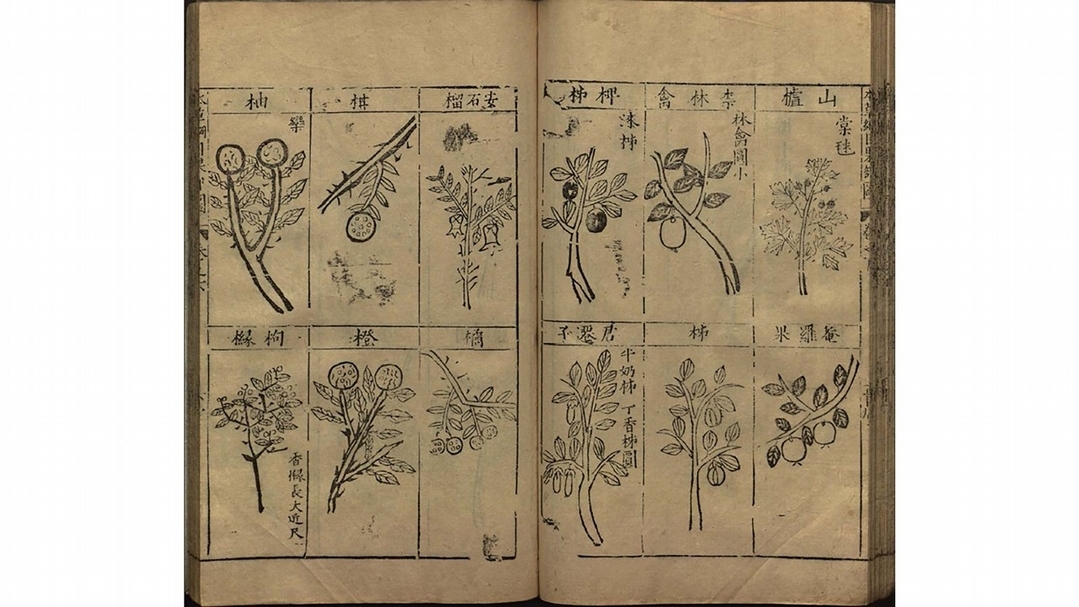 山樝
棠毬
柰林禽
林禽圓小
椑柹
漆柹
菴羅果
柹
君遷子
牛奶柹
丁香柹圓
安石榴
柑
柚
欒
橘
橙
枸櫞
香櫞長大近尺